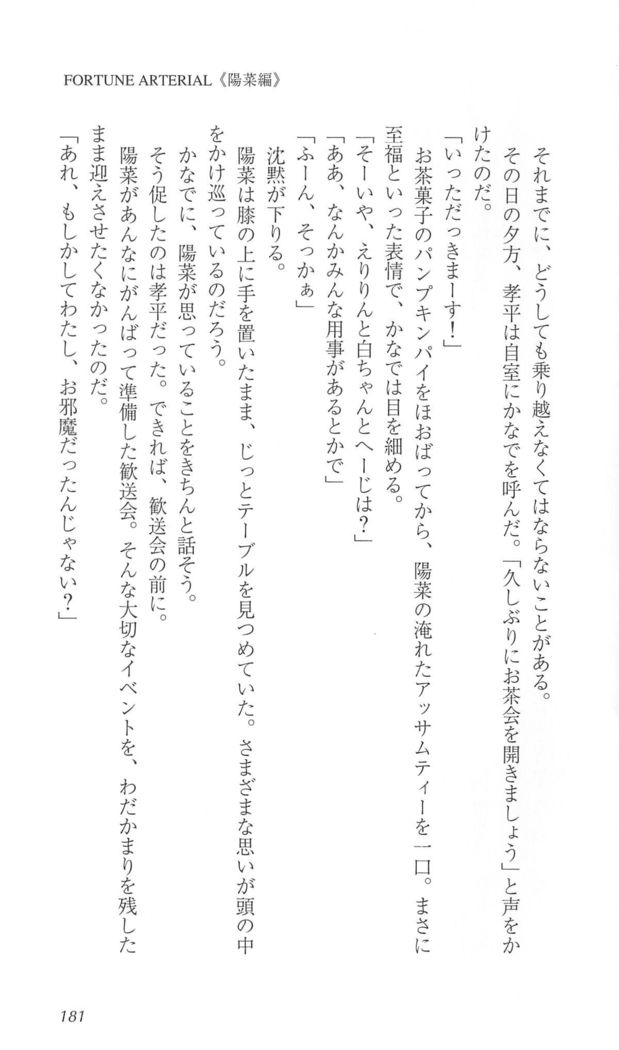 FORTUNE ARTERIAL《陽菜編》
それまでに、どうしても乗り越えなくてはならないことがある。
その日の夕方、孝平は自室にかなでを呼んだ。「久しぶりにお茶会を開きましょう」と声をか
けたのだ。
「いっただっきまーす！」
お茶菓子のパンプキンパイをほおばってから、陽菜の淹れたアッサムティーを一口。まさに
至福といった表情で、かなでは目を細める。
「そーいや、えりりんと白ちゃんとへーじは？」
「ああ、なんかみんな用事があるとかで」
「ふーん、そっかぁ」
沈黙が下りる。
陽菜は膝の上に手を置いたまま、じっとテーブルを見つめていた。さまざまな思いが頭の中
をかけ巡っているのだろう。
かなでに、陽菜が思っていることをきちんと話そう。
そう促したのは孝平だった。できれば、歓送会の前に。
陽菜があんなにがんばって準備した歓送会。そんな大切なイベントを、わだかまりを残した
まま迎えさせたくなかったのだ。
「あれ、もしかしてわたし、お邪魔だったんじゃない？」
181